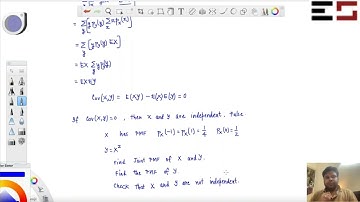 = Σ_y [y P_Y(y) Σ_x x P_X(x)]
= Σ_y [y P_Y(y) EX]
= EX Σ_y y P_Y(y)
= EX EY
Cov(X,Y) = E(XY) - E(X)E(Y) = 0
If Cov(X,Y)=0, then X and Y are independent. Take
X has PMF P_X(-1) = P_X(1) = 1/4 P_X(0) = 1/2
Y = X²
Find Joint PMF of X and Y.
Find the PMF of Y.
Check that X and Y are not independent.